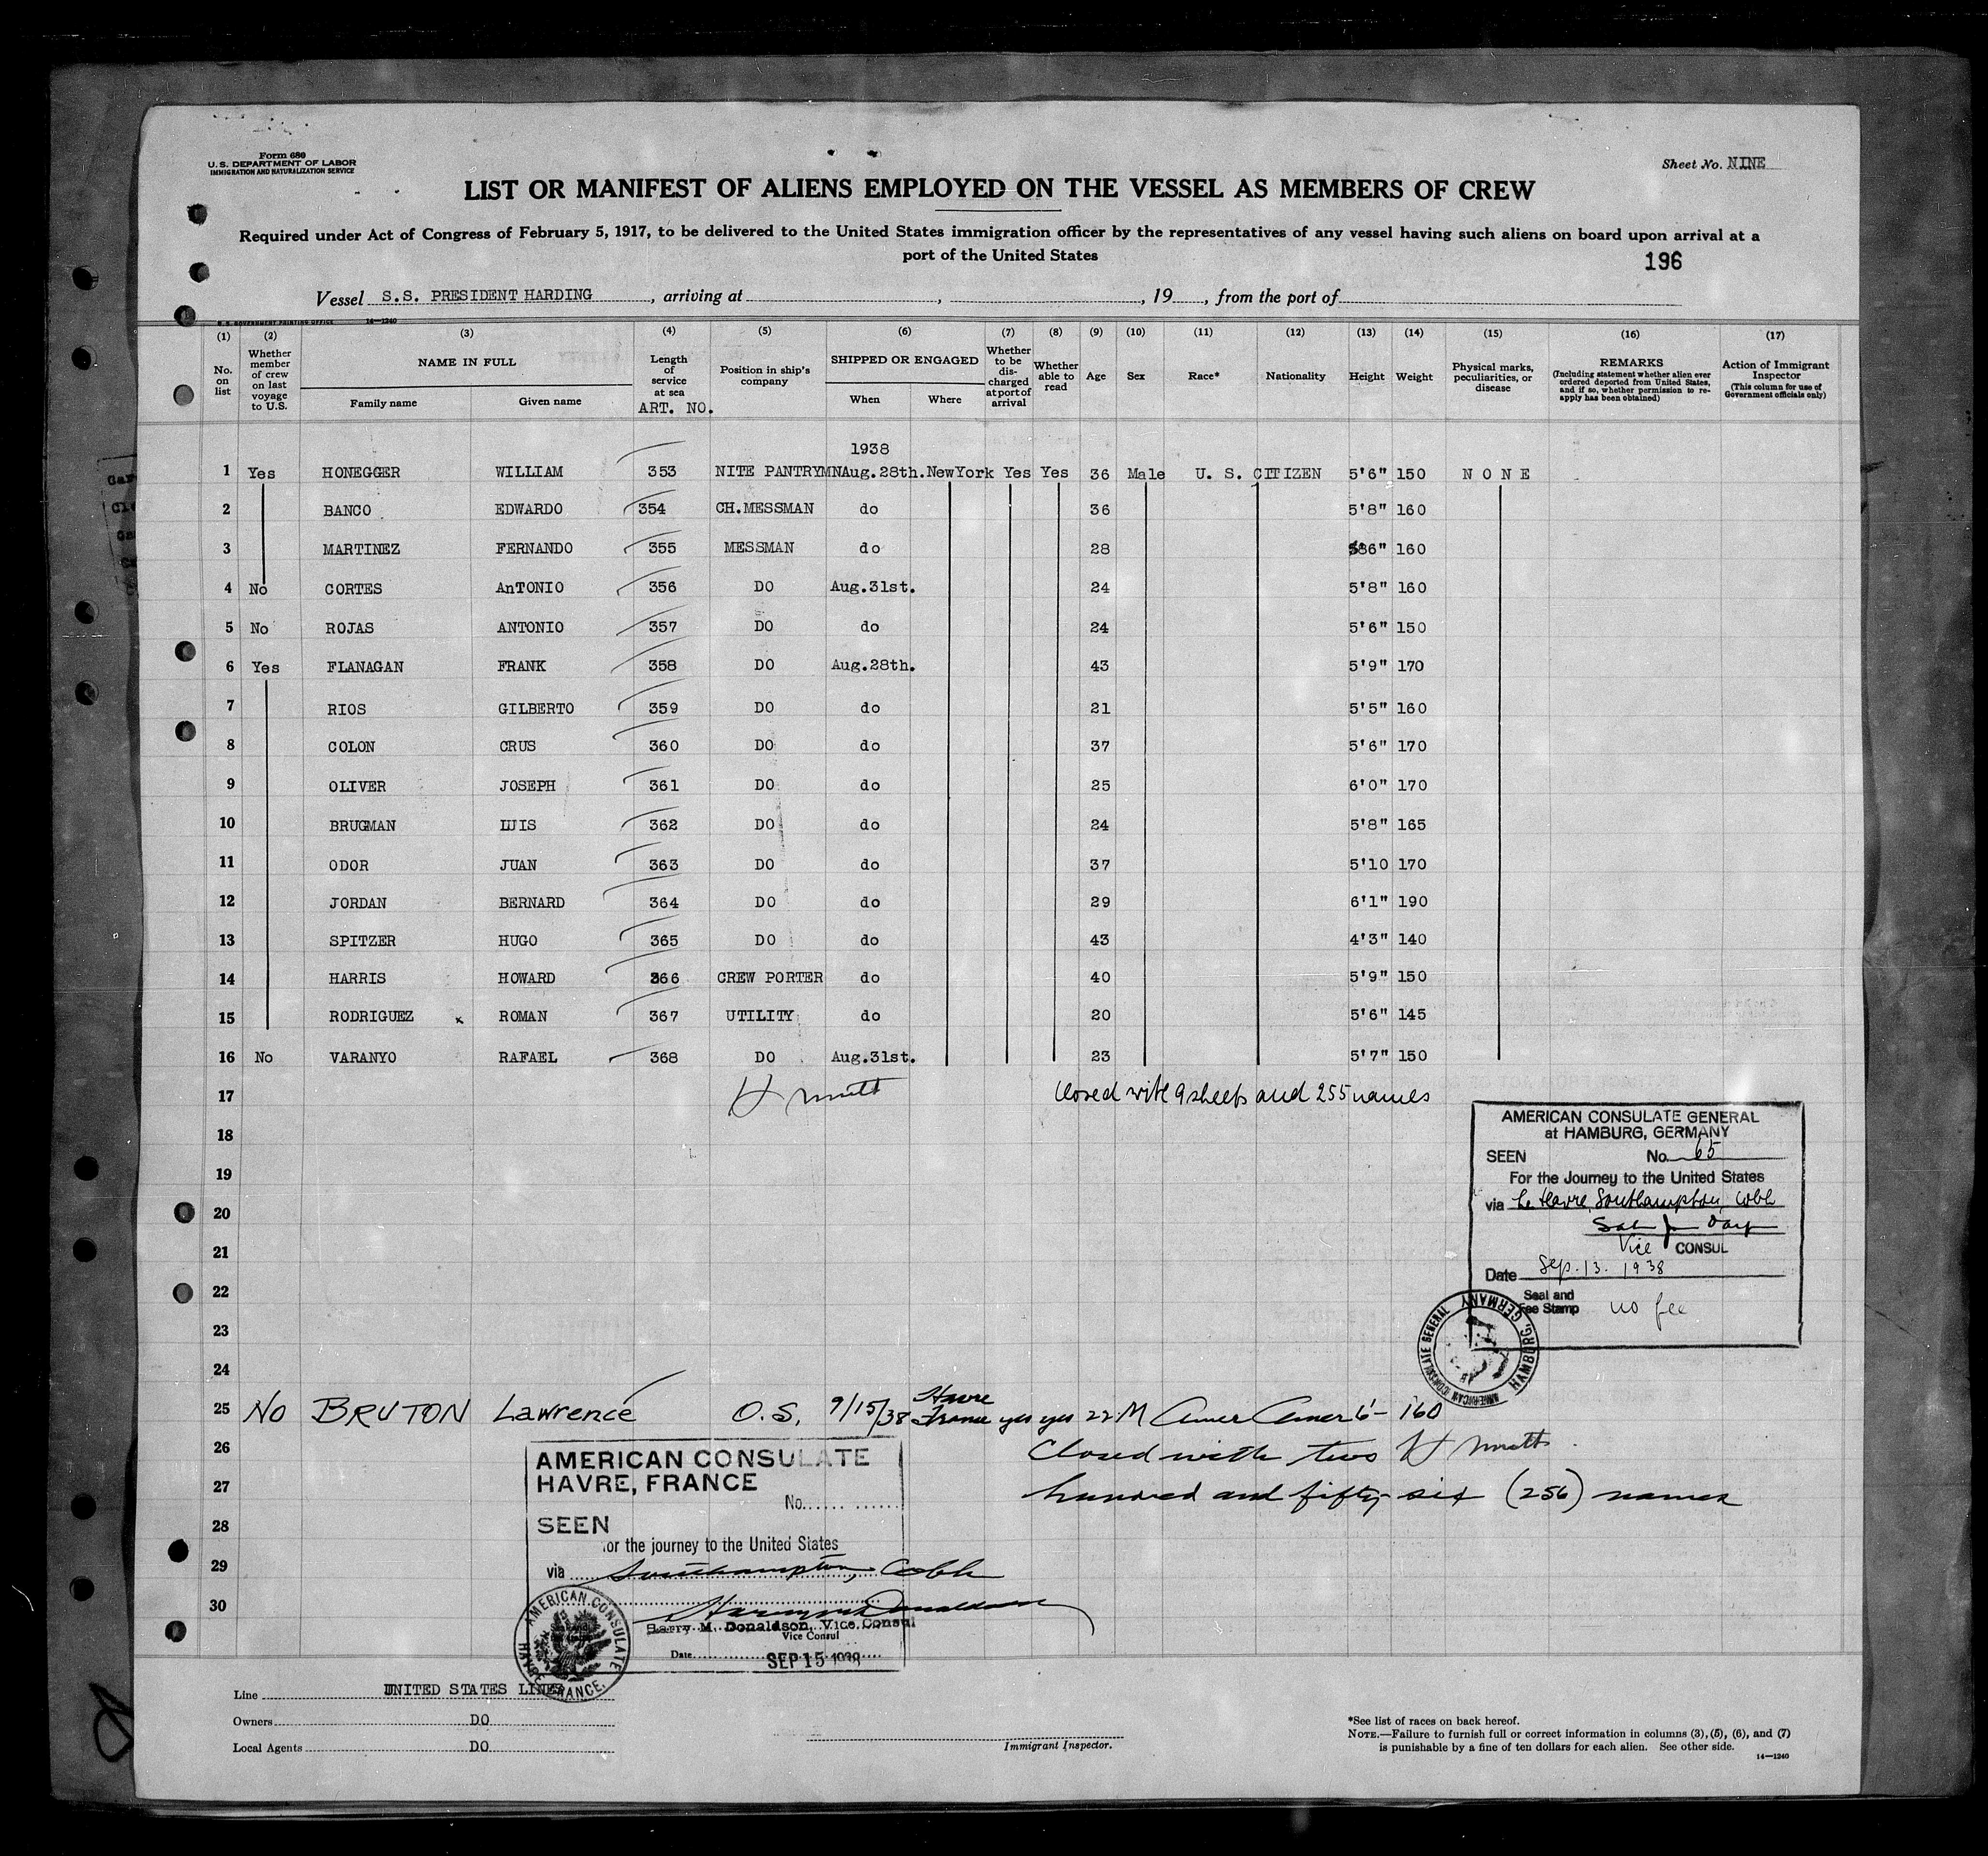 Form 680
U. S. DEPARTMENT OF LABOR
IMMIGRATION AND NATURALIZATION SERVICE
Sheet No. NINE
LIST OR MANIFEST OF ALIENS EMPLOYED ON THE VESSEL AS MEMBERS OF CREW
Required under Act of Congress of February 5, 1917, to be delivered to the United States immigration officer by the representatives of any vessel having such aliens on board upon arrival at a
port of the United States
196
Vessel S.S. PRESIDENT HARDING, arriving at , , 19 , from the port of
U. S. GOVERNMENT PRINTING OFFICE 14—1240
(1) No. on list
(2) Whether member of crew on last voyage to U.S.
(3) NAME IN FULL Family name Given name
(4) Length of service at sea ART. NO.
(5) Position in ship's company
(6) SHIPPED OR ENGAGED When Where
(7) Whether to be discharged at port of arrival
(8) Whether able to read
(9) Age
(10) Sex
(11) Race*
(12) Nationality
(13) Height
(14) Weight
(15) Physical marks, peculiarities, or disease
(16) REMARKS (Including statement whether alien ever ordered deported from United States, and if so, whether permission to re-apply has been obtained)
(17) Action of Immigrant Inspector (This column for use of Government officials only)
1938
1 Yes HONEGGER WILLIAM 353 NITE PANTRYMN Aug.28th. NewYork Yes Yes 36 Male U. S. CITIZEN 5'6" 150 N O N E
2 BANCO EDWARDO 354 CH.MESSMAN do 36 5'8" 160
3 MARTINEZ FERNANDO 355 MESSMAN do 28 6" 160
4 No CORTES AnTONIO 356 DO Aug.31st. 24 5'8" 160
5 No ROJAS ANTONIO 357 DO do 24 5'6" 150
6 Yes FLANAGAN FRANK 358 DO Aug.28th. 43 5'9" 170
7 RIOS GILBERTO 359 DO do 21 5'5" 160
8 COLON CRUS 360 DO do 37 5'6" 170
9 OLIVER JOSEPH 361 DO do 25 6'0" 170
10 BRUGMAN LUIS 362 DO do 24 5'8" 165
11 ODOR JUAN 363 DO do 37 5'10 170
12 JORDAN BERNARD 364 DO do 29 6'1" 190
13 SPITZER HUGO 365 DO do 43 4'3" 140
14 HARRIS HOWARD 366 CREW PORTER do 40 5'9" 150
15 RODRIGUEZ x ROMAN 367 UTILITY do 20 5'6" 145
16 No VARANYO RAFAEL 368 DO Aug.31st. 23 5'7" 150
17 closed with 9 sheets and 255 names
18
19
20
21
22
23
24
AMERICAN CONSULATE GENERAL
at HAMBURG, GERMANY
SEEN No. 65
For the Journey to the United States
via Le Havre, Southampton, Cobh
Vice CONSUL
Date Sep. 13. 1938
Seal and
Fee Stamp no fee
AMERICAN CONSULATE GENERAL HAMBURG, GERMANY
25 No BRUTON Lawrence O.S. 9/15/38 Havre France yes yes 22 M Amer Amer 6'- 160
26 Closed with two
27 hundred and fifty-six (256) names
28
29
30
AMERICAN CONSULATE
HAVRE, FRANCE
No.
SEEN
or the journey to the United States
via Southampton, Cobh
Harry M. Donaldson
Harry M. Donaldson, Vice Consul
Vice Consul
Date SEP 15 1938
AMERICAN CONSULATE HAVRE, FRANCE.
Line UNITED STATES LINES
Owners DO
Local Agents DO
Immigrant Inspector.
*See list of races on back hereof.
NOTE.—Failure to furnish full or correct information in columns (3), (5), (6), and (7)
is punishable by a fine of ten dollars for each alien. See other side.
14—1240